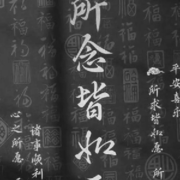 平安喜乐
所求皆如愿
所念皆如
诸事顺利
心之所愿